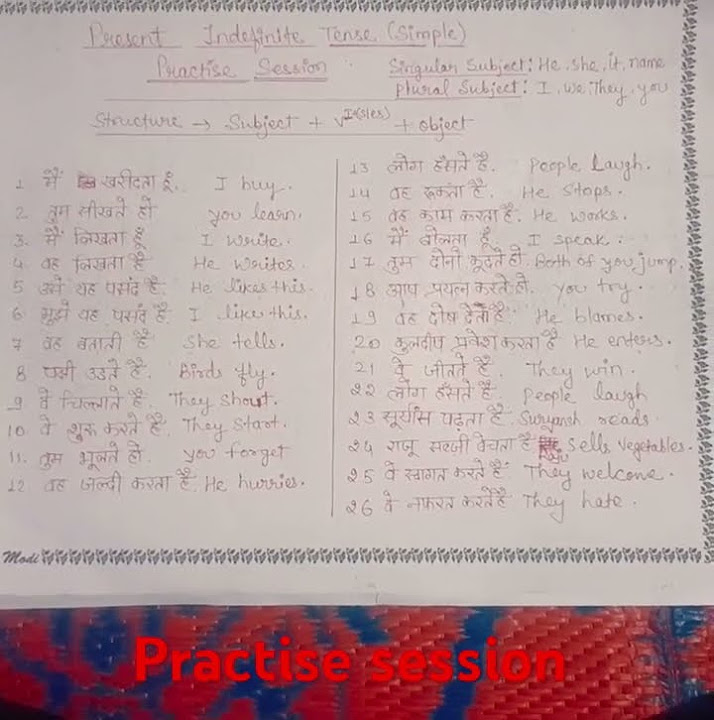 Present Indefinite Tense (Simple)
Practise Session
Singular Subject: He, she, it, name
Plural Subject: I, we, They, you
Structure → Subject + V^I(s/es) + object
1 मैं खरीदता हूँ. I buy.
2 तुम सीखते हो you learn.
3. मैं लिखता हूँ I write.
4 वह लिखता है He writes.
5 उसे यह पसंद है. He likes this.
6 मुझे यह पसंद है. I like this.
7 वह बताती है She tells.
8 पक्षी उड़ते है. Birds fly.
9 वे चिल्लाते है. They shout.
10 वे शुरू करते है. They start.
11. तुम भूलते हो. you forget
12 वह जल्दी करता है. He hurries.
13 लोग हँसते है. People Laugh.
14 वह रूकता है. He stops.
15 वह काम करता है. He works.
16 मैं बोलता हूँ. I speak.
17 तुम दोनो कूदते हो. Both of you jump.
18 आप प्रयत्न करते हो. you try.
19 वह दोष देता है. He blames.
20 कुलदीप प्रवेश करता है He enters.
21 वे जीतते है. They win.
22 लोग हँसते है. People laugh
23 सूर्यांस पढ़ता है. Suryansh reads.
24 राजू सब्जी बेचता है. Raju Sells Vegetables.
25 वे स्वागत करते है They welcome.
26 वे नफरत करते है They hate.
Modi
Practise session